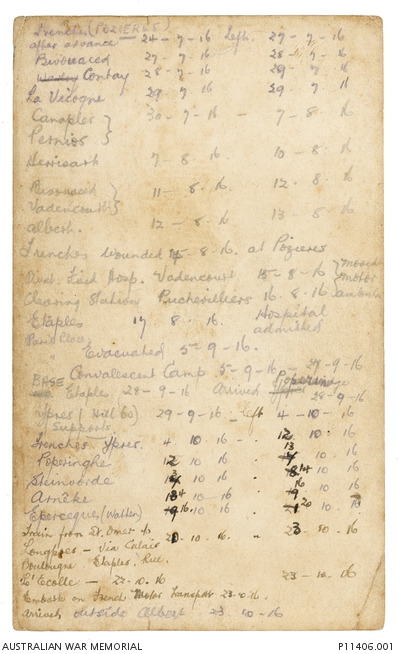 Trenches (POZIERES)
after advance 24-7-16 Left. 27-7-16
Bivouaced 27-7-16 28-7-16
Contay 28-7-16 29 7 16
La Vicogne 29 7 16 29 7 16
Canaples } 30-7-16 - 7-8-16
Pernois }
Herrisart 7 8 16. 10-8-16.
Bivouaced } 11-8-16. 12. 8. 16
Vadencourt }
Albert. 12-8-16. 13 8 16
Trenches wounded 15-8-16. at Pozieres
Field Hosp. Vadencourt 15-8-16 } moved
motor
Clearing Station Puchevilliers 16. 8. 16 ambulance
Etaples 17 8 16. Hospital
admitted
Evacuated 5-9-16.
Convalescent Camp 5-9-16 - 27-9-16
BASE Etaple. 28-9-16 Arrived Poperinge
28-9-16
Ypres (Hill 60) 29-9-16 - left 4-10-16
Supports.
Trenches. Ypres. 4 10 16 - 12 10. 16
Poperinghe 12 10 16 13 10 16
Steinvorde 10 16 14 10 16
Arneke 10 16 10 16
Eperecques (Watten) 16. 10 16 20 10 16
Train from St. Omer to 10. 16. 23. 10. 16
Longpres - Via Calais
Boulougne Etaples. Rue.
L'Ecolle - 22.10.16 23-10.16
Embark on French Motor Transport 23.10.16.
arrived outside Albert 23 10-16
AUSTRALIAN WAR MEMORIAL P11406.001